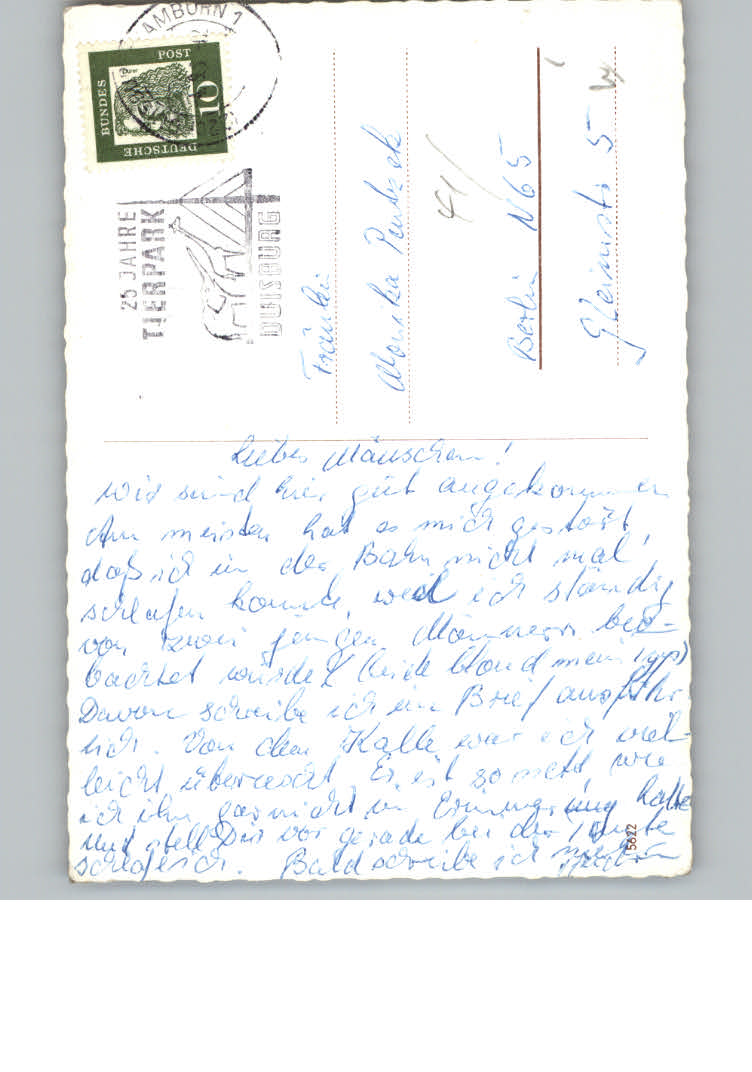 AMBORN 1
DEUTSCHE
BUNDES
POST
10
25 JAHRE
TIERPARK
DUISBURG
Fräulein
Monika
41/
Berlin N65
Gleimstr. 5
Liebes Mäuschen!
Wir sind hier gut angekommen
Am meisten hat es mich gestört,
daß ich in der Bahn nicht mal
schlafen konnte, weil ich ständig
von zwei jungen Männern beo-
bachtet wurde (beide blond mein Typ)
Davon schreibe ich im Brief ausführ
lich. Von dem Kalle war ich viel-
leicht überrascht Er ist so nett wie
ich ihn gar nicht in Erinnerung hatte
Und stell Dir vor gerade bei der Tante
schlafe ich. Bald schreibe ich
15622